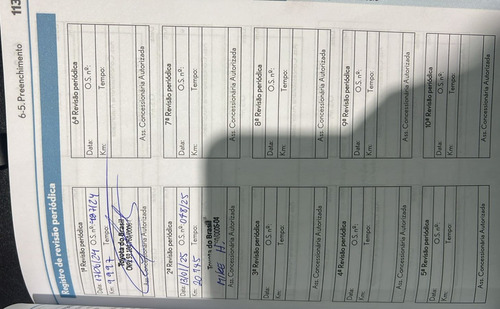 6-5. Preenchimento
113
Registro de revisão periódica
1ª Revisão periódica
O.S. nº:
Km: 9997
Tempo:
Toyota do Brasil
Ass. Concessionária Autorizada
2ª Revisão periódica
Data: 13/01/25 O.S. nº: 098/25
Km: 20.945 Tempo:
Toyota do Brasil
Ass. Concessionária Autorizada
3ª Revisão periódica
Data: O.S. nº:
Km: Tempo:
Ass. Concessionária Autorizada
4ª Revisão periódica
Data: O.S. nº:
Km: Tempo:
Ass. Concessionária Autorizada
5ª Revisão periódica
Data: O.S. nº:
Km: Tempo:
Ass. Concessionária Autorizada
6ª Revisão periódica
Data: O.S. nº:
Km: Tempo:
Ass. Concessionária Autorizada
7ª Revisão periódica
Data: O.S. nº:
Km: Tempo:
Ass. Concessionária Autorizada
8ª Revisão periódica
Data: O.S. nº:
Km: Tempo:
Ass. Concessionária Autorizada
9ª Revisão periódica
Data: O.S. nº:
Km: Tempo:
Ass. Concessionária Autorizada
10ª Revisão periódica
Data: O.S. nº:
Km: Tempo:
Ass. Concessionária Autorizada